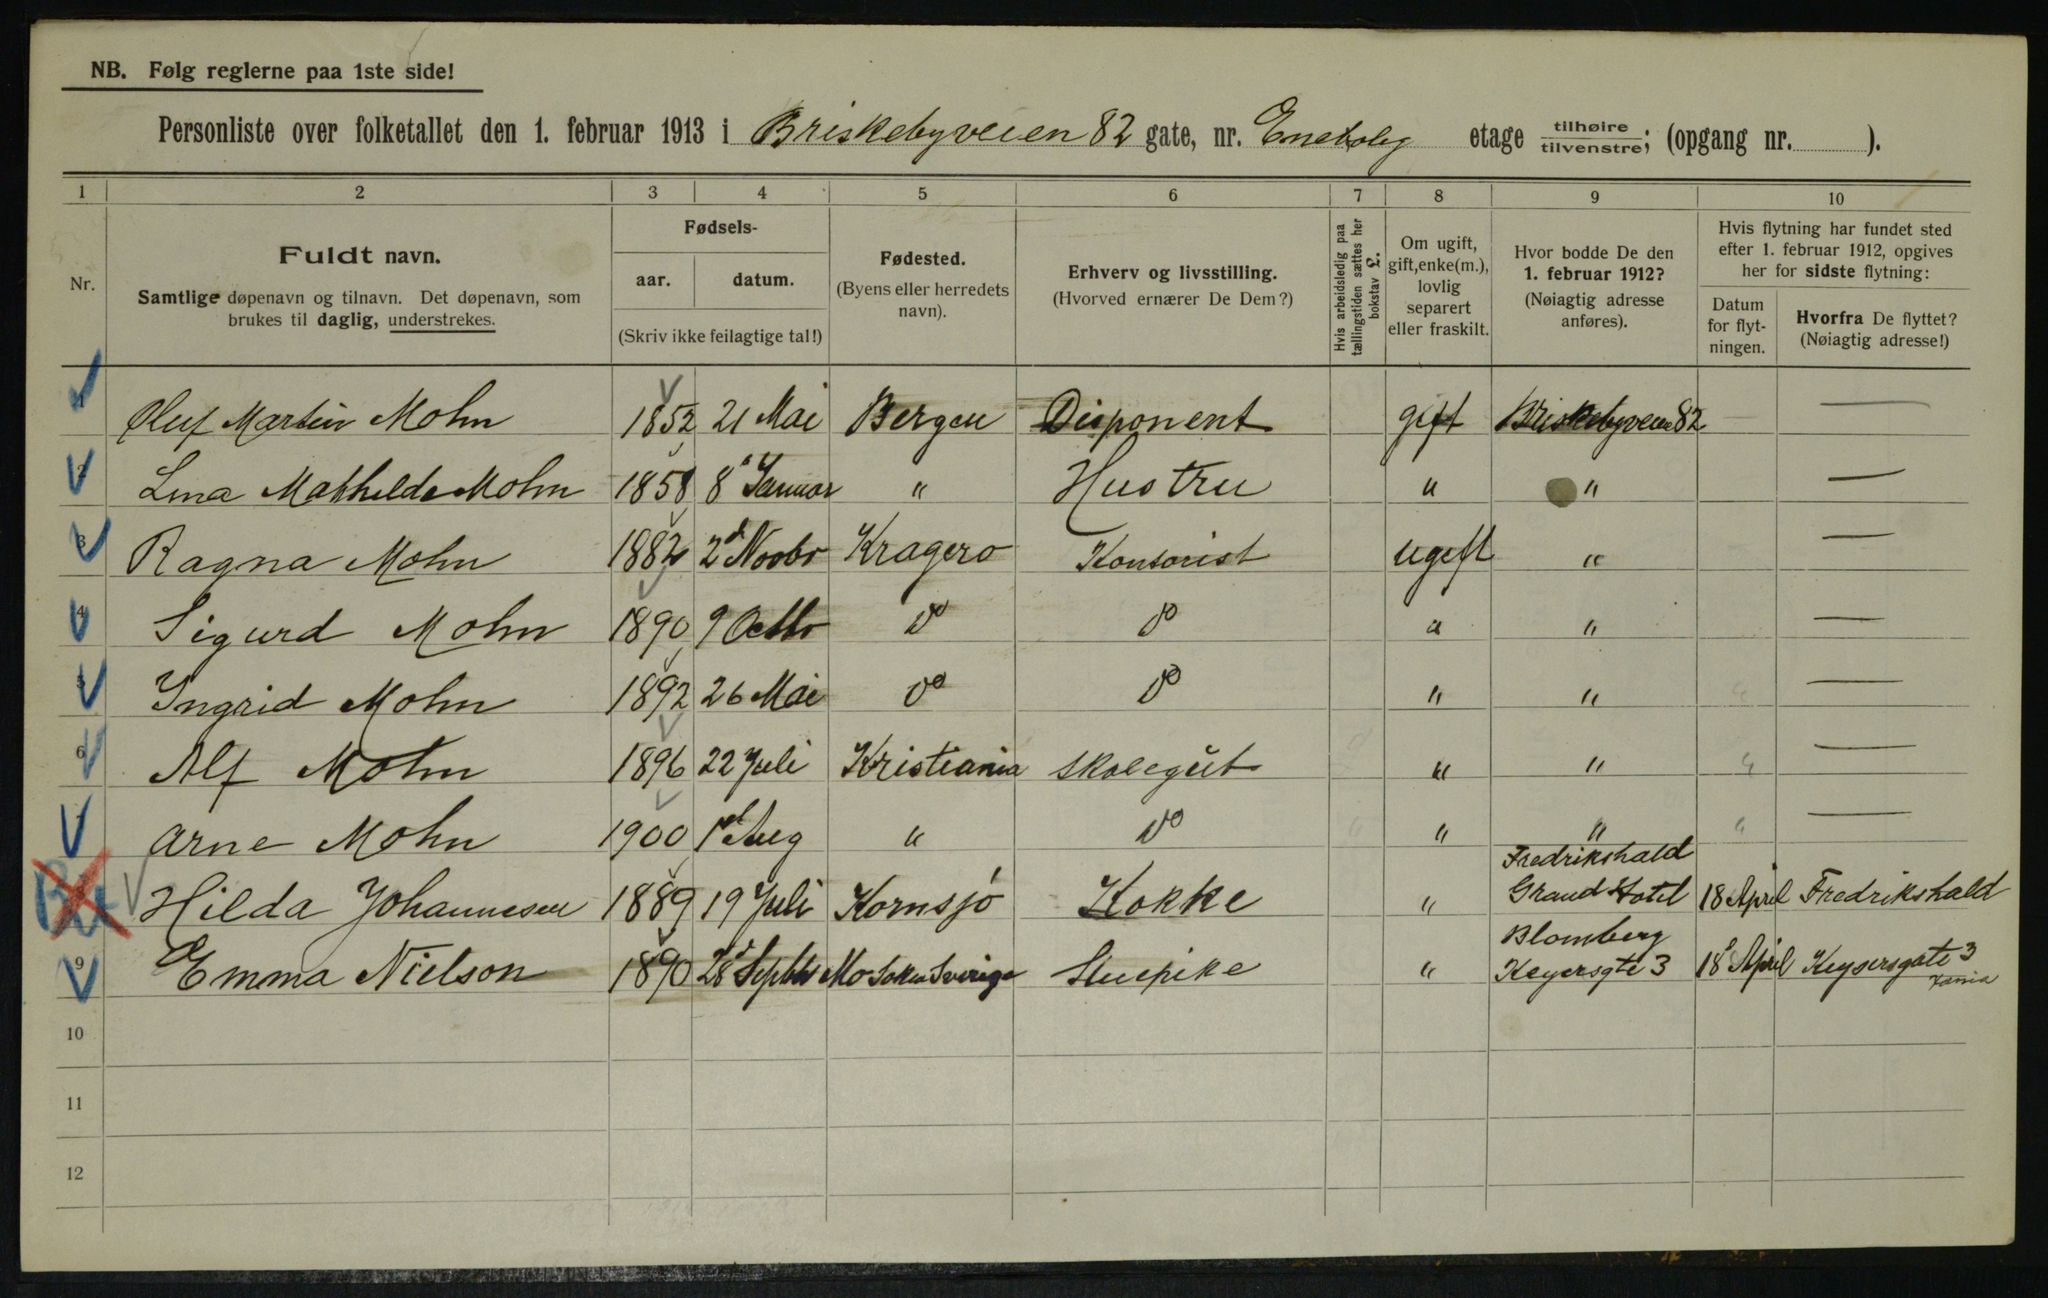 NB. Følg reglerne paa 1ste side!
Personliste over folketallet den 1. februar 1913 i Briskebyveien 82 gate, nr. Enebolig etage tilhøire / tilvenstre; (opgang nr. ).
1 2 3 4 5 6 7 8 9 10
Nr.
Fuldt navn.
Samtlige døpenavn og tilnavn. Det døpenavn, som
brukes til daglig, understrekes.
Fødsels-
aar. datum.
(Skriv ikke feilagtige tal!)
Fødested.
(Byens eller herredets
navn).
Erhverv og livsstilling.
(Hvorved ernærer De Dem?)
Hvis arbeidsledig paa
tællingstiden sættes her
bokstav L.
Om ugift,
gift, enke(m.),
lovlig
separert
eller fraskilt.
Hvor bodde De den
1. februar 1912?
(Nøiagtig adresse
anføres).
Hvis flytning har fundet sted
efter 1. februar 1912, opgives
her for sidste flytning:
Datum
for flyt-
ningen.
Hvorfra De flyttet?
(Nøiagtig adresse!)
1 Oluf Martin Mohn 1852 21 Mai Bergen Disponent gift Briskebyveien 82 —
2 Lina Mathilde Mohn 1858 8 Januar " Hustru " " —
3 Ragna Mohn 1882 2d Novbr Kragerø Kontorist ugift " —
4 Sigurd Mohn 1890 9 Octbr do do " " —
5 Yngrid Mohn 1892 26 Mai do do " " —
6 Alf Mohn 1896 22 Juli Kristiania skolegut " " —
7 Arne Mohn 1900 1d Aug " do " " —
Fredrikshald
8 Hilda Johannesen 1889 19 Juli Kornsjø Kokke " Grand Hotel 18 April Fredrikshald
Blomberg
9 Emma Nielson 1890 28d Septbr Mo Sokn Sverige Stuepike " Keyersgte 3 18d April Keysersgate 3
Kania
10
11
12